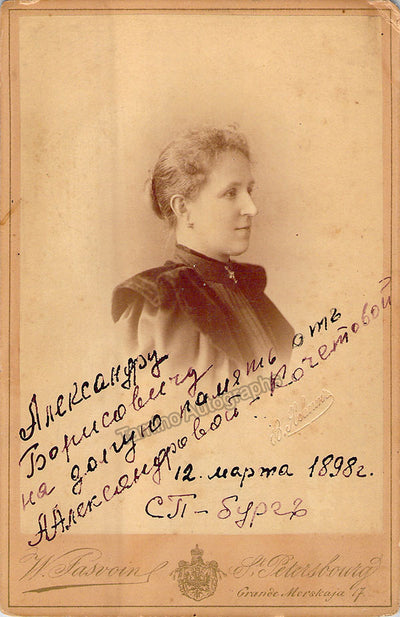 Александру
Борисовичу
на долгую память отъ
ААлександровой-Кочетовой
12. марта 1898 г.
СП-бургъ
Tamino Autographs
W. Pasvoin
St. Petersbourg
Grande Morskaja 17.